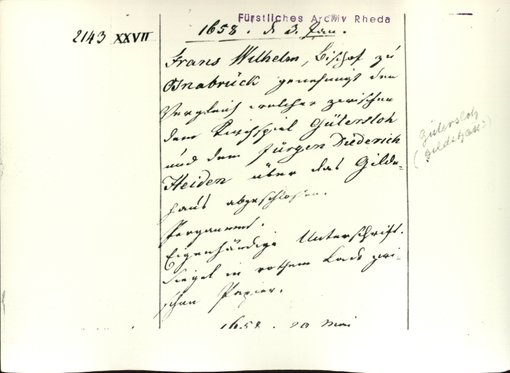 Fürstliches Archiv Rheda
2143 XXVII
1658. d. 3. Jan.
Franz Wilhelm, Bischof zu
Osnabrück genehmigt den
Vergleich welcher zwischen
dem Kirchspiel Gütersloh
und dem Jürgen Diederich
Heiden über das Gilde-
haus abgeschlossen.
Pergament.
Eigenhändige Unterschrift.
Siegel in rothem Lack zwi-
schen Papier.
Gütersloh
1658. 20 Mai